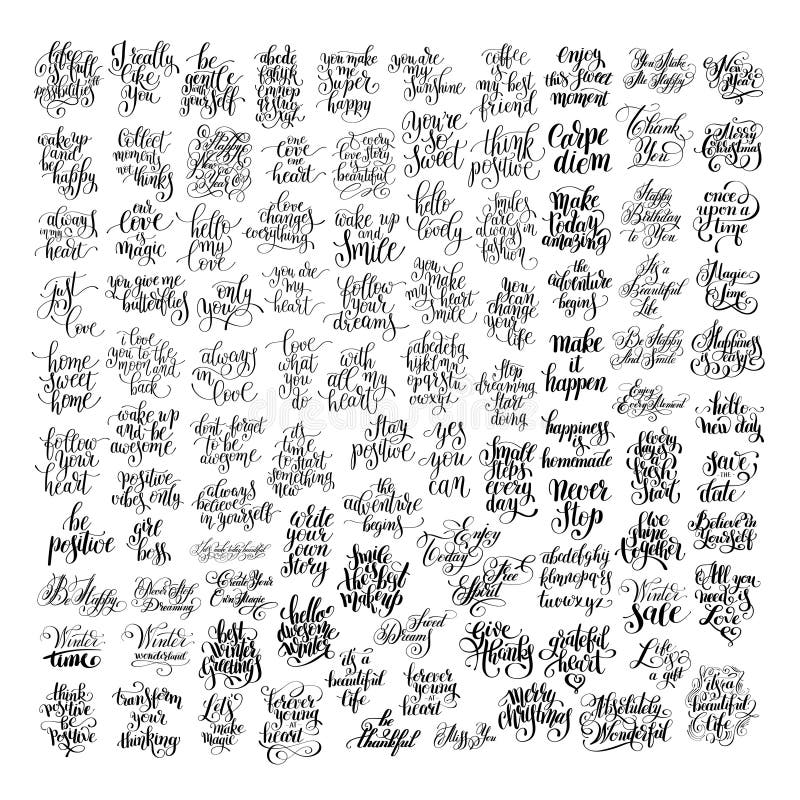 life
is full
of
possibilities
I really
like
you
be
gentle
with
yourself
abcde
fghyk
lmnop
qrstu
vwxyz
you make
me
super
happy
you are
my
Sunshine
coffee
is my best
friend
enjoy
this sweet
moment
You Make
Me Happy
New
Year
wake up
and be
happy
collect
moments
not
thinks
Happy
New
Year
one
love
one
heart
every
love story
is
beautiful
you're
so
sweet
think
positive
Carpe
diem
Thank
You
Merry
Christmas
always
in my
heart
our
love
is
magic
hello
my
love
love
changes
everything
wake up
and
smile
hello
lovely
smiles
are
always in
fashion
make
today
amazing
Happy
Birthday
to You
once
upon a
time
just
love
you give me
butterflies
only
you
you are
my
heart
follow
your
dreams
you
make
my heart
smile
you
can
change
your
life
the
adventure
begins
It's a
Beautiful
Life
Magic
Time
home
sweet
home
i love
you to the
moon and
back
always
in
love
love
what
you
do
with
all my
heart
abcdefg
hijklmn
opqrstu
vwxyz
stop
dreaming
start
doing
make
it
happen
Be Happy
And Smile
Happiness
is
easy
Enjoy
Every Moment
hello
new day
follow
your
heart
wake up
and be
awesome
dont forget
to be
awesome
it's
time to start
something
new
stay
positive
yes
you
can
small
steps
every
day
happiness
is
homemade
every
day is a
fresh
start
Save
THE
date
positive
vibes only
always
believe
in yourself
the
adventure
begins
Never
Stop
be
positive
girl
boss
write
your
own
story
Enjoy
Today
abcdefghij
klmnopqrs
tuvwxyz
we
shine
together
Believe in
Yourself
Be Happy
Never Stop
Dreaming
Create Your
Own Magic
Smile
is
the best
makeup
Free
Spirit
Winter
Sale
All you
need is
Love
Winter
time
Winter
wonderland
best
winter
greetings
hello
awesome
winter
Sweet
Dreams
Give
Thanks
grateful
heart
Life
is
a gift
it's a
beautiful
life
forever
young
at
heart
think
positive
be
positive
transform
your
thinking
Let's
make
magic
forever
young
at
heart
be
thankful
Miss You
merry
christmas
Absolutely
Wonderful
it's a
beautiful
life